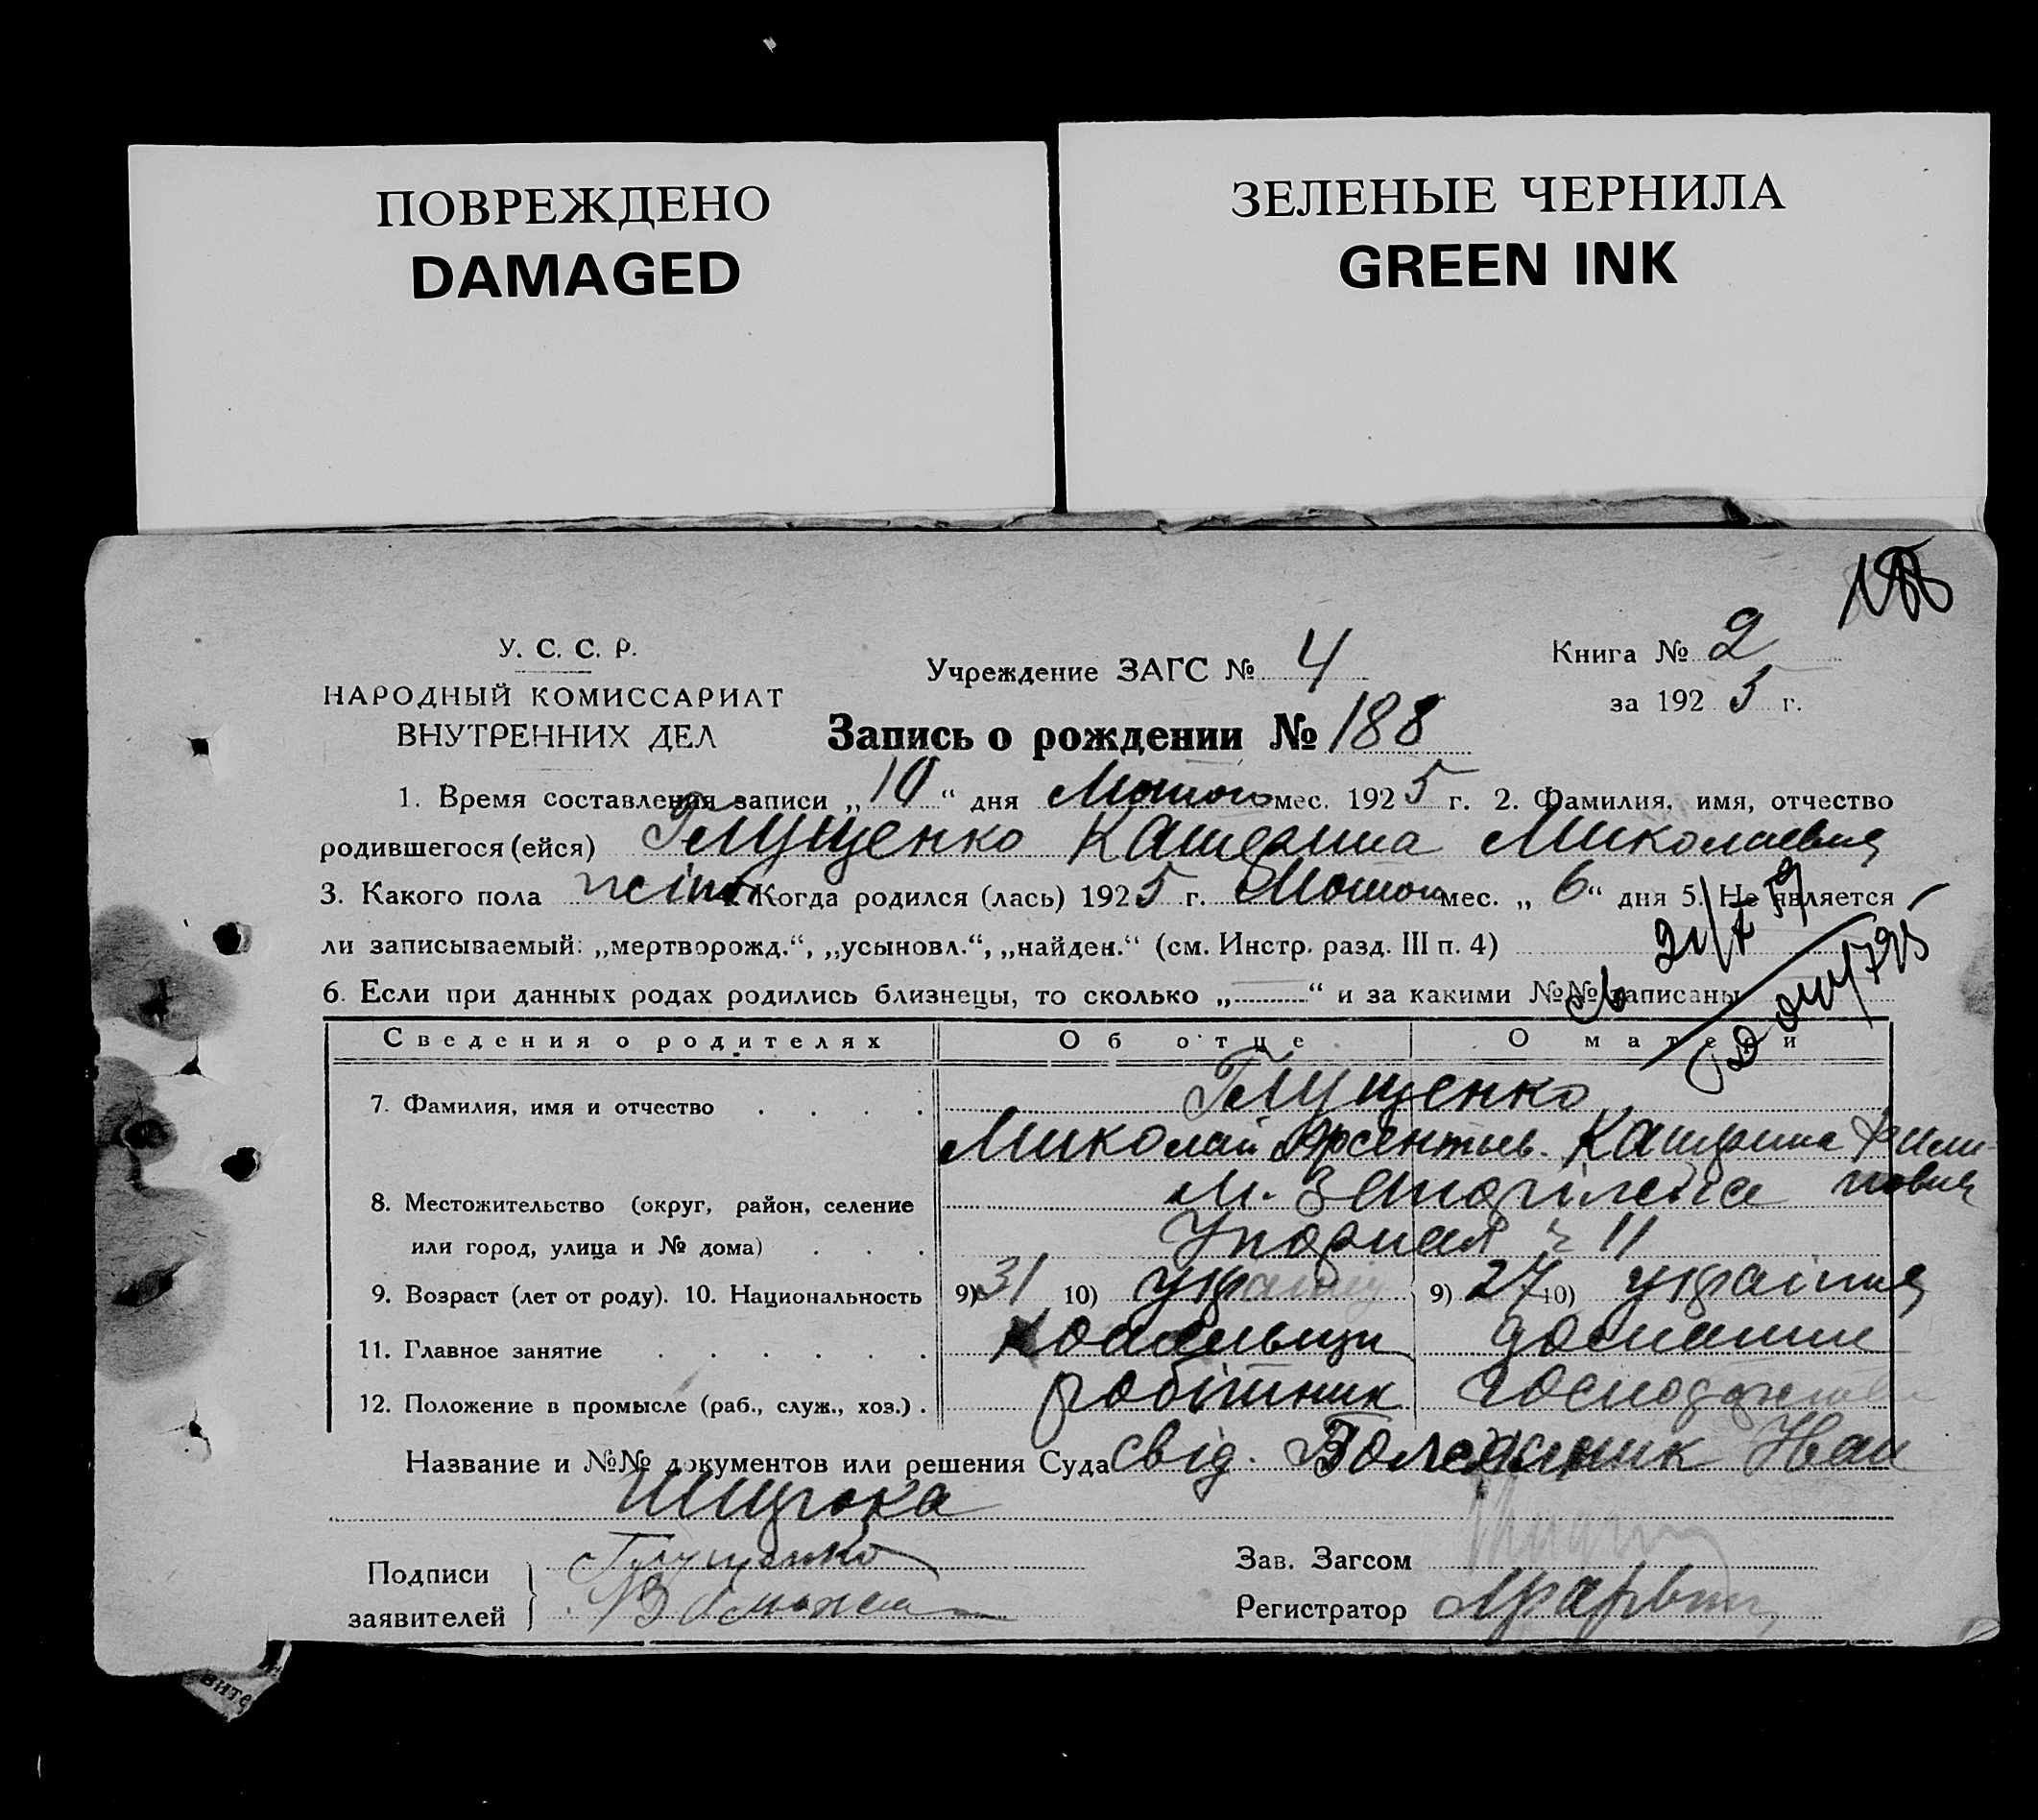 ПОВРЕЖДЕНО
DAMAGED
ЗЕЛЕНЫЕ ЧЕРНИЛА
GREEN INK
У. С. С. Р.
НАРОДНЫЙ КОМИССАРИАТ
ВНУТРЕННИХ ДЕЛ
Учреждение ЗАГС № 4
Книга № 2
за 1925 г.
Запись о рождении № 188
1. Время составления записи „10“ дня Лютого мес. 1925 г. 2. Фамилия, имя, отчество
родившегося (ейся) Глущенко Катерина Миколаевна
3. Какого пола жіноч. Когда родился (лась) 1925 г. Лютого мес. „6“ дня 5. Не является
ли записываемый: „мертворожд.“, „усыновл.“, „найден.“ (см. Инстр. разд. III п. 4)
6. Если при данных родах родились близнецы, то сколько „ “ и за какими №№ записаны
Сведения о родителях Об отце О матери
7. Фамилия, имя и отчество Глущенко
Миколай Арсентьев. Катерина Фили-
повна
8. Местожительство (округ, район, селение м. Запоріжжа
или город, улица и № дома) 11
9. Возраст (лет от роду). 10. Национальность 9) 31 10) україн 9) 27 10) україна
11. Главное занятие домашне
12. Положение в промысле (раб., служ., хоз.) робітник господарство
Название и №№ документов или решения Суда свід. Иван
Подписи
заявителей
Глущенко
Зав. Загсом
Регистратор
вите